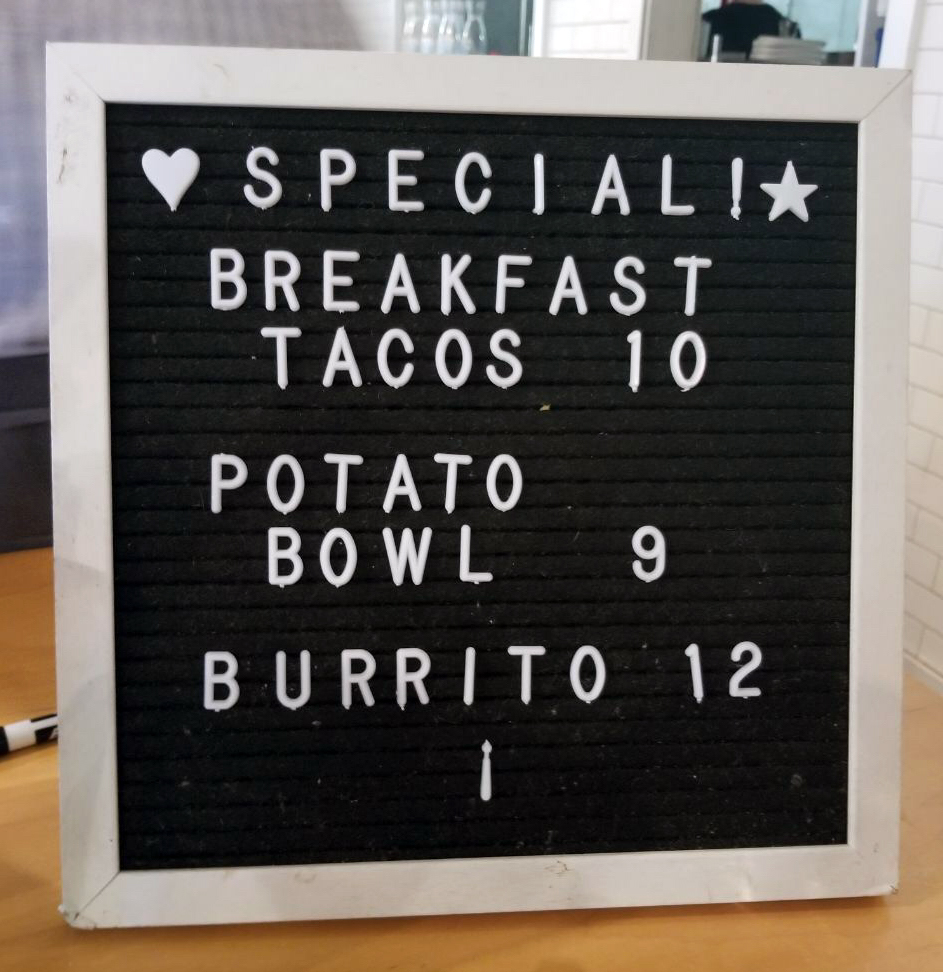 ♥ SPECIAL!★
BREAKFAST
TACOS 10
POTATO
BOWL 9
BURRITO 12
¡